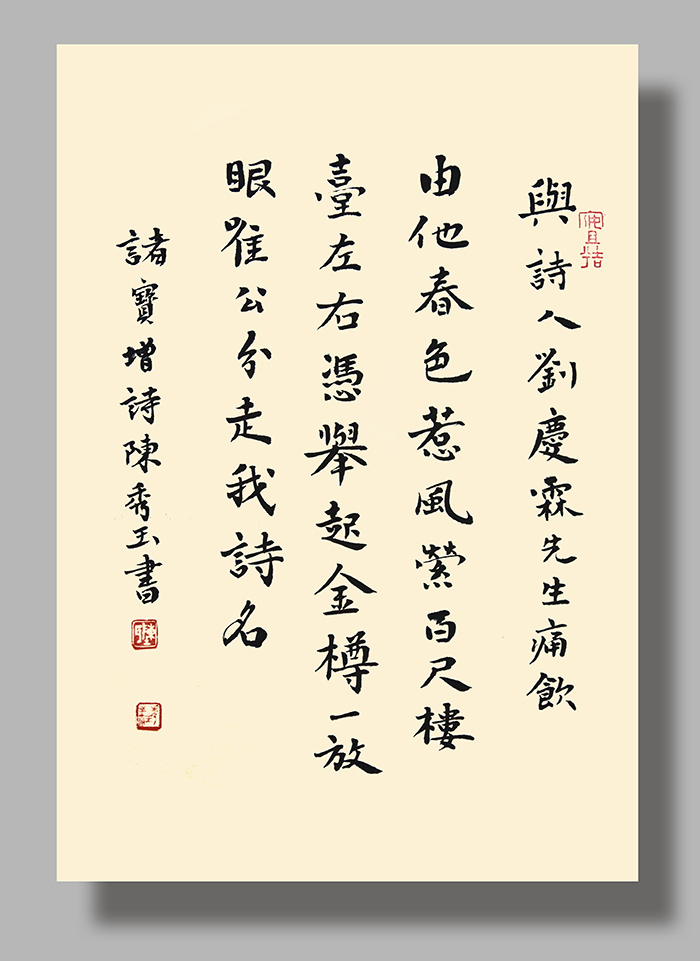 與詩人劉慶霖先生痛飲
由他春色惹風縈百尺樓
臺左右憑舉起金樽一放
眼唯公分走我詩名
諸寶增詩陳秀玉書